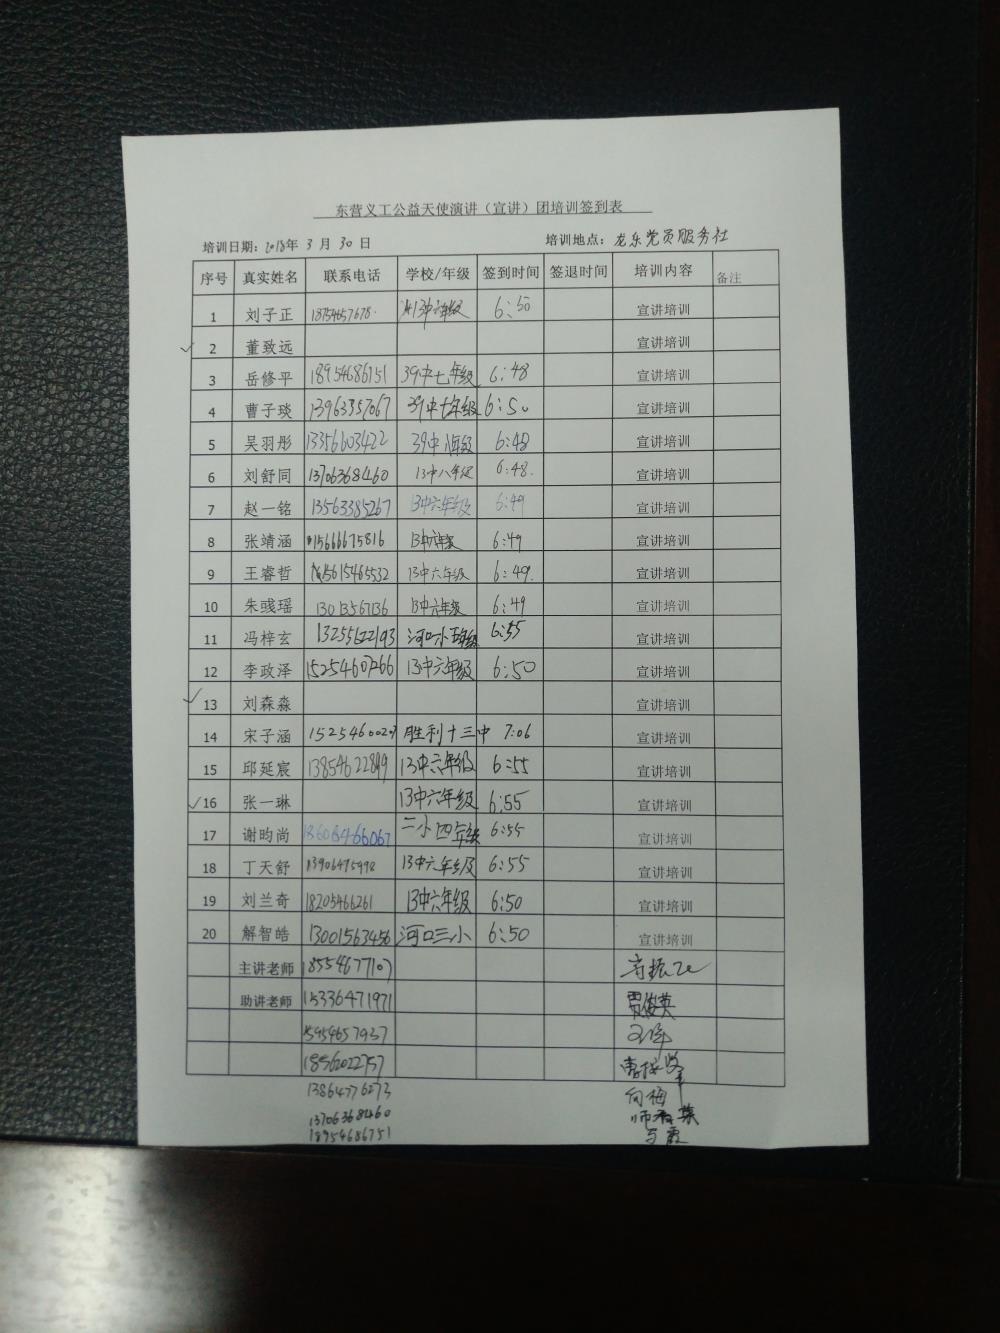 东营义工公益天使演讲（宣讲）团培训签到表
培训日期：2018年 3 月 30 日 培训地点：龙乐党员服务社
序号 真实姓名 联系电话 学校/年级 签到时间 签退时间 培训内容 备注
1 刘子正 18754657678 13中六年级 6:50 宣讲培训
2 董致远 宣讲培训
3 岳修平 18954686751 39中七年级 6:48 宣讲培训
4 曹子琰 13963357067 39中七年级 6:50 宣讲培训
5 吴羽彤 13356603422 39中八年级 6:48 宣讲培训
6 刘舒同 13706368460 13中八年级 6:48 宣讲培训
7 赵一铭 13563385267 13中六年级 6:49 宣讲培训
8 张靖涵 15666675816 13中六年级 6:49 宣讲培训
9 王睿哲 15615465532 13中六年级 6:49 宣讲培训
10 朱彧瑶 13013567136 13中六年级 6:49 宣讲培训
11 冯梓玄 13255622193 河口一小五年级 6:55 宣讲培训
12 李政泽 15254607266 13中六年级 6:50 宣讲培训
13 刘森淼 宣讲培训
14 宋子涵 15254600207 胜利十三中 7:06 宣讲培训
15 邱延宸 13854622899 13中六年级 6:55 宣讲培训
16 张一琳 13中六年级 6:55 宣讲培训
17 谢昀尚 18606466067 二小四年级 6:55 宣讲培训
18 丁天舒 13906475998 13中六年级 6:55 宣讲培训
19 刘兰奇 18205466261 13中六年级 6:50 宣讲培训
20 解智皓 13001563456 河口三小 6:50 宣讲培训
主讲老师 18554677107
助讲老师 15336471971 贾俊英
15954657937
18562022757
13864776273 向梅
13706368460
18954686751